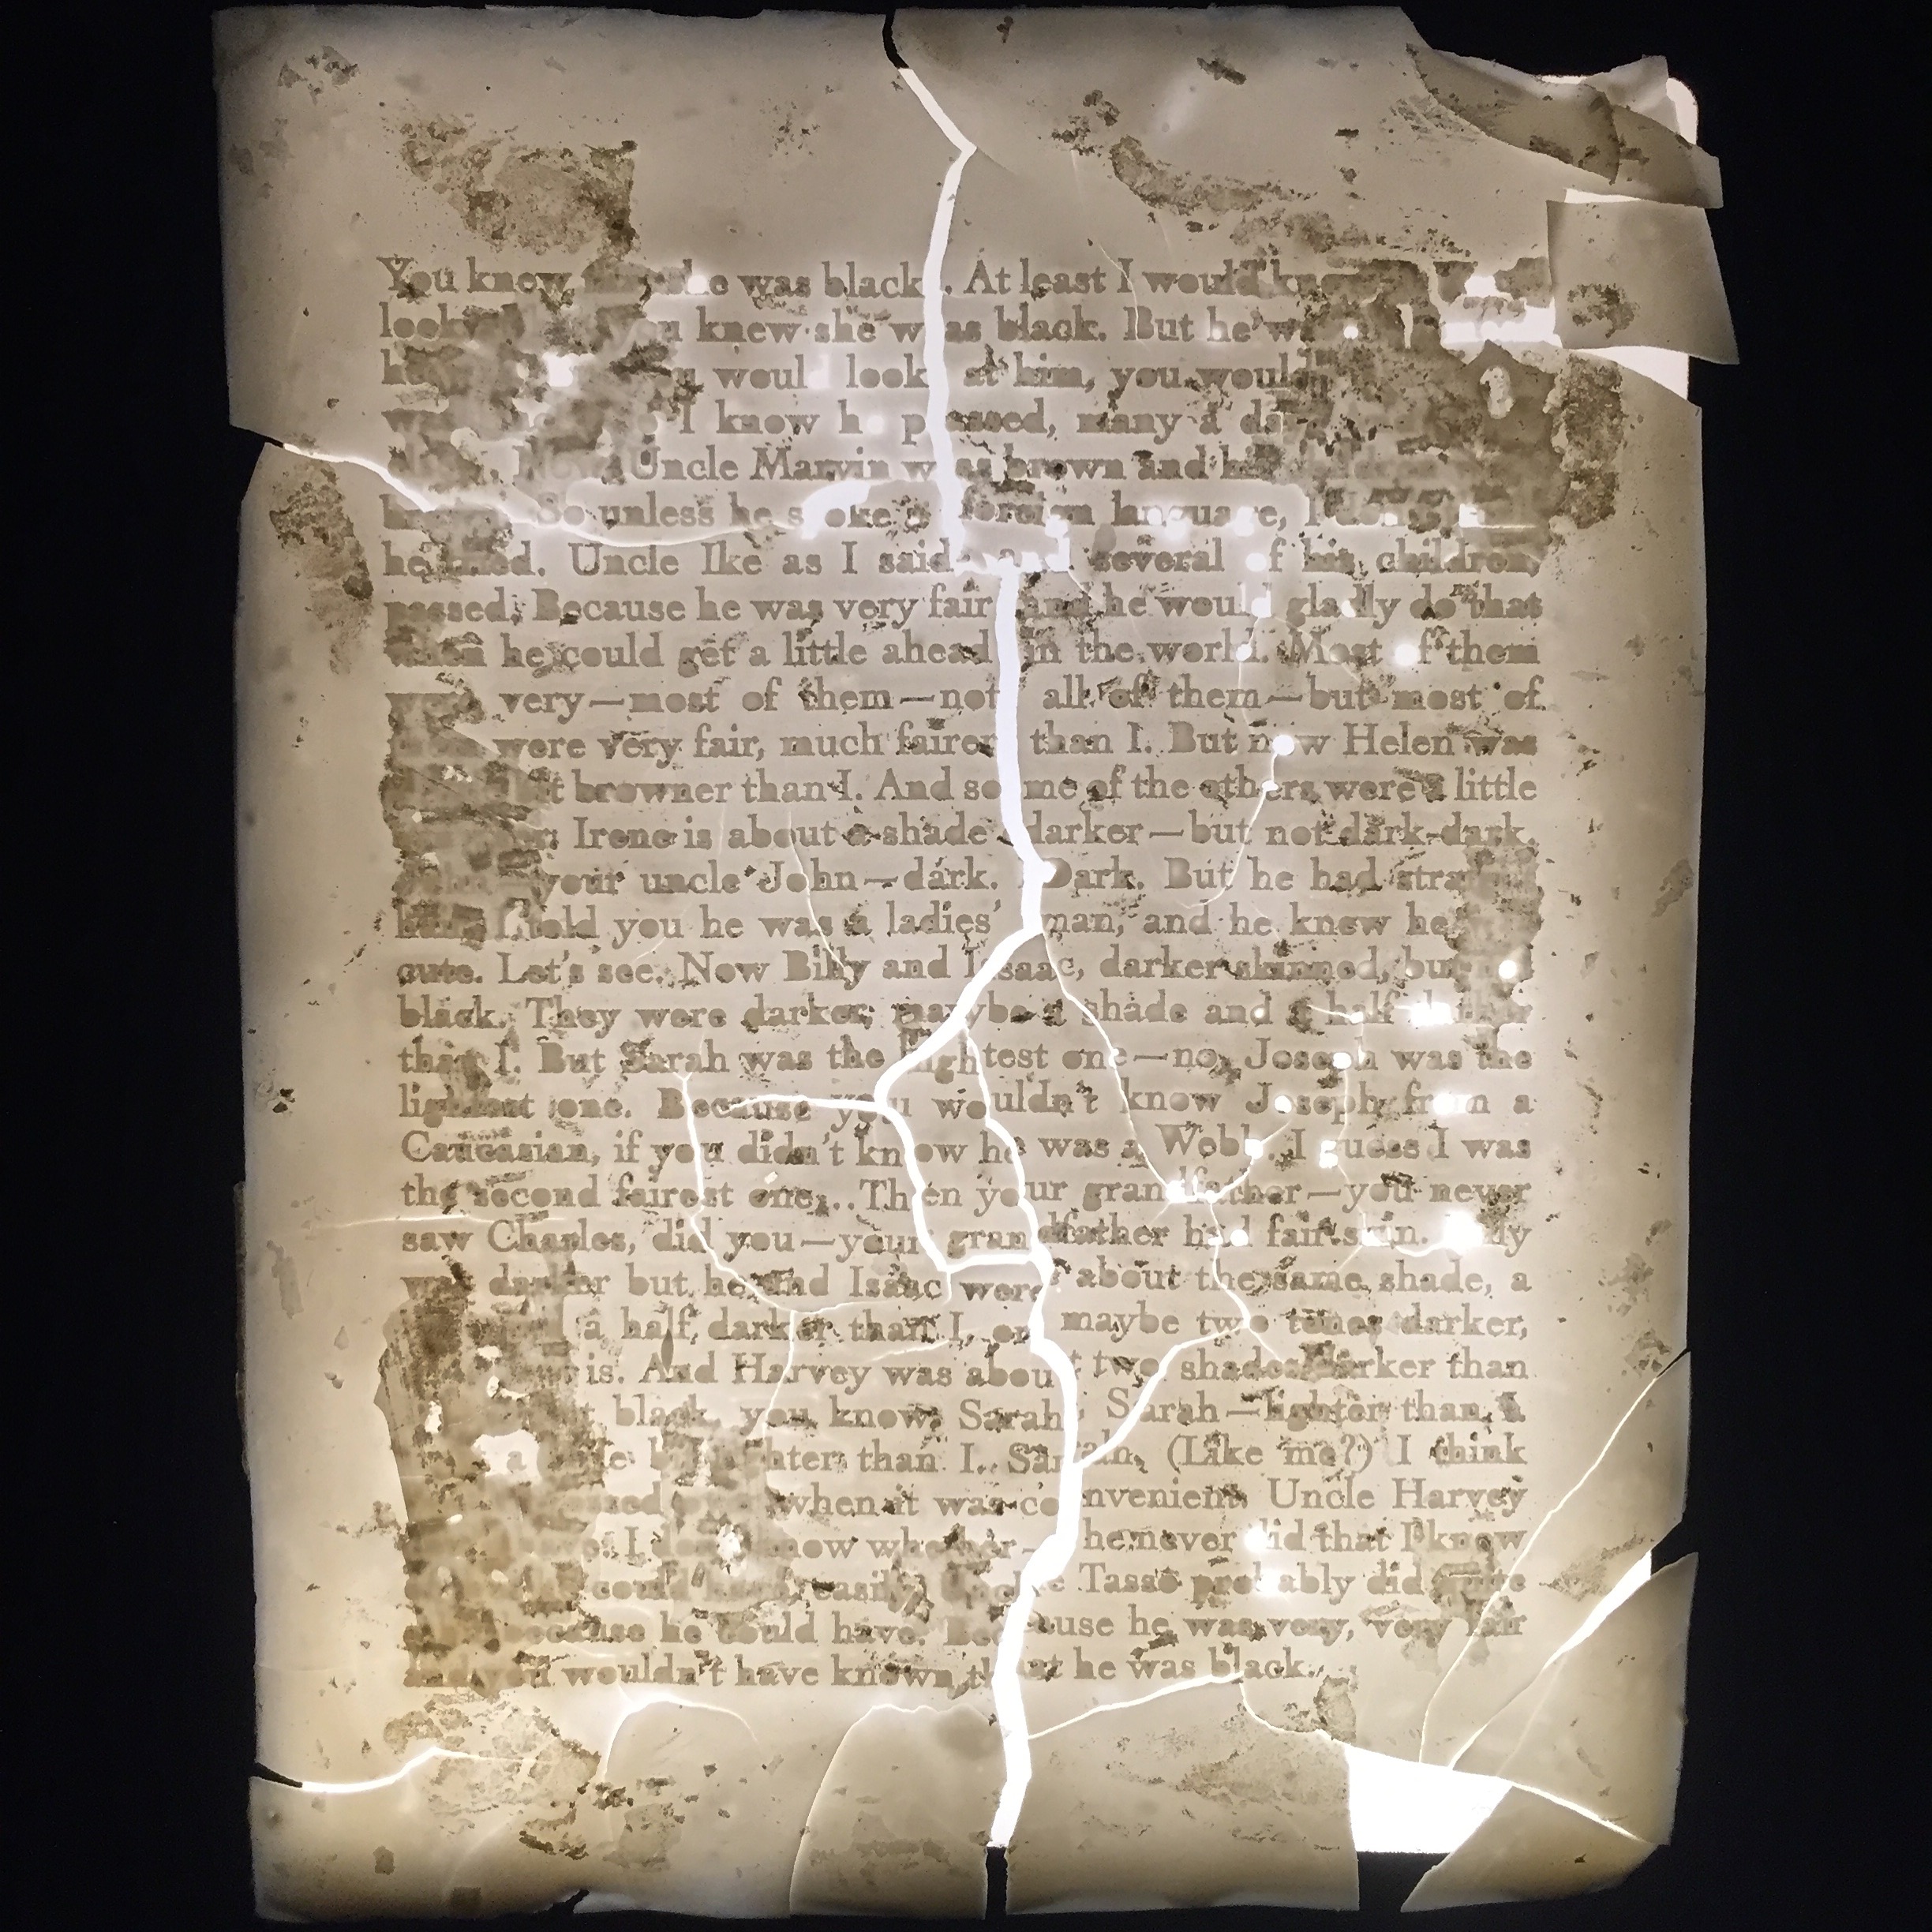 You knew she was black. At least I would
you knew she was black. But he
would look at him, you would
I know he passed, many a
Uncle Marvin was brown and his
So unless he spoke a foreign language, I don't
he tried. Uncle Ike as I said and several of his children,
passed. Because he was very fair and he would gladly do that
when he could get a little ahead in the world. Most of them
were very—most of them—not all of them—but most of
were very fair, much fairer than I. But now Helen was
browner than I. And some of the others were a little
Irene is about a shade darker—but not dark-dark.
your uncle John—dark. Dark. But he had straight
hair. I told you he was a ladies' man, and he knew he
cute. Let's see. Now Billy and Isaac, darker skinned, but not
black. They were darker, maybe a shade and a half darker
than I. But Sarah was the lightest one—no, Joseph was the
lightest one. Because you wouldn't know Joseph from a
Caucasian, if you didn't know he was a Webb. I guess I was
the second fairest one... Then your grandfather—you never
saw Charles, did you—your grandfather had fair skin. Billy
was darker but he and Isaac were about the same shade, a
a half, darker than I, or maybe two tones darker,
is. And Harvey was about two shades darker than
black, you know. Sarah, Sarah—lighter than I.
a little bit lighter than I. Sarah. (Like me?) I think
passed when it was convenient. Uncle Harvey
I don't know whether—he never did that I know
could have, easily. Uncle Tasso probably did quite
because he could have. Because he was very, very fair
and you wouldn't have known that he was black.